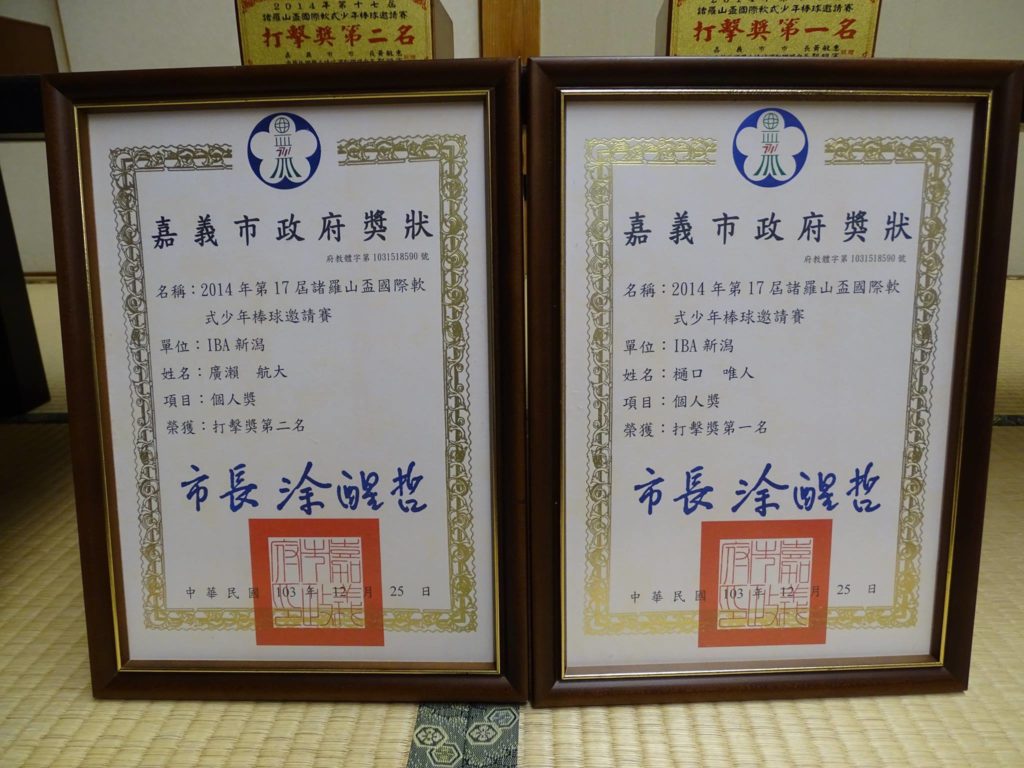 2014年第十七屆
諸羅山盃國際軟式少年棒球邀請賽
打擊獎第二名
嘉義市市長黃敏惠
2014年第十七屆
諸羅山盃國際軟式少年棒球邀請賽
打擊獎第一名
嘉義市市長黃敏惠
嘉義市政府獎狀
府教體字第1031518590號
名稱：2014年第17屆諸羅山盃國際軟
式少年棒球邀請賽
單位：IBA新潟
姓名：廣瀨 航大
項目：個人獎
榮獲：打擊獎第二名
市長 涂醒哲
嘉義市政府之印
中華民國 103 年 12 月 25 日
嘉義市政府獎狀
府教體字第1031518590號
名稱：2014年第17屆諸羅山盃國際軟
式少年棒球邀請賽
單位：IBA新潟
姓名：樋口 唯人
項目：個人獎
榮獲：打擊獎第一名
市長 涂醒哲
嘉義市政府之印
中華民國 103 年 12 月 25 日